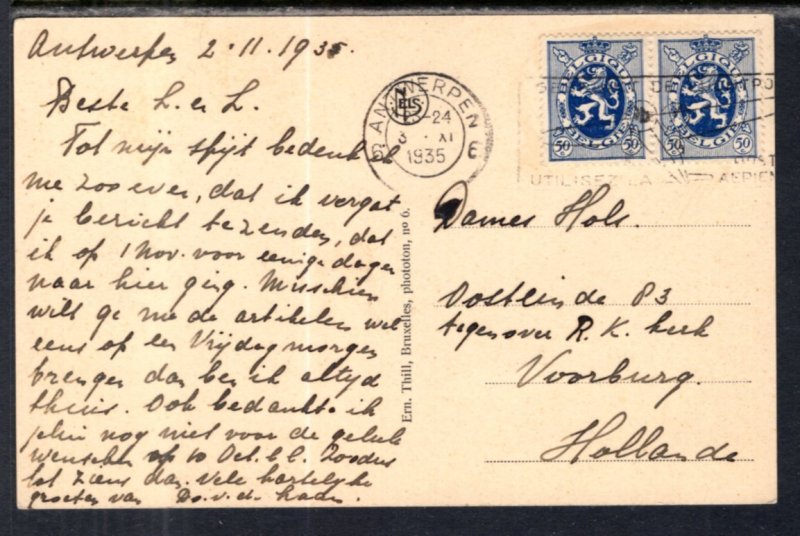 Antwerpen 2·11.1935.
Beste L. en L.
Tot mijn spijt bedenk ik
me zoo even, dat ik vergat
je bericht te zenden, dat
ik op 1 Nov. voor eenige dagen
naar hier ging. Misschien
wilt ge me de artikelen wel
eens op een Vrijdagmorgen
brengen dan ben ik altijd
thuis. Ook bedankte ik
nog niet voor de geluk
wenschen op 10 Oct. l.l. Zoodus
tot ziens dan. Vele hartelijke
groeten van
ANTWERPEN
-24
3 · XI
1935
E
BELGIQUE
BELGIË
50
50
BELGIQUE
BELGIË
50
50
UTILISEZ LA
AERIEN
Dames Hols.
Oostlinde 83
tegenover R. K. kerk
Voorburg.
Hollande
Ern. Thill, Bruxelles, phototon, nº 6.